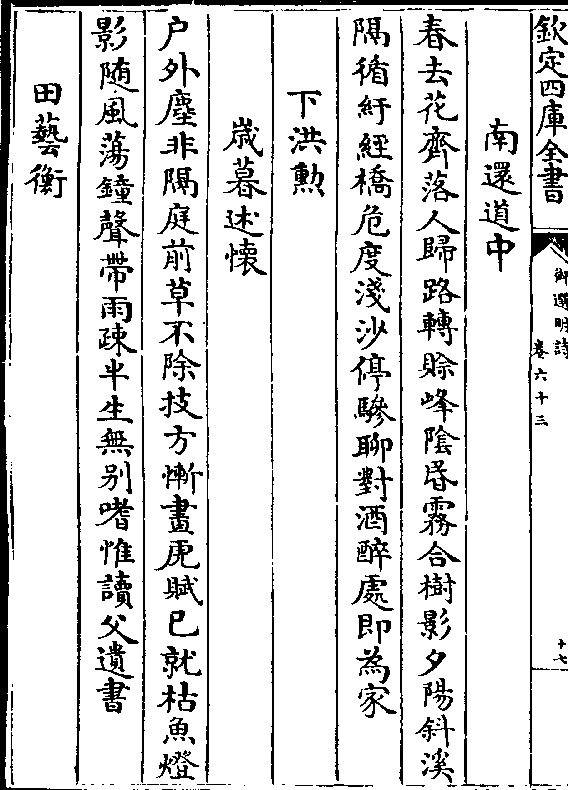 欽定四庫全書
御選明詩
卷六十三
十七
南還道中
春去花齊落人歸路轉賒峰陰昏霧合樹影夕陽斜溪
隔循紆經橋危度淺沙停驂聊對酒醉處即為家
卞洪勲
嵗暮述懷
户外塵非隔庭前草不除技方慚畫虎賦已就枯魚燈
影随風蕩鐘聲帶雨疎半生無别嗜惟讀父遺書
田藝衡